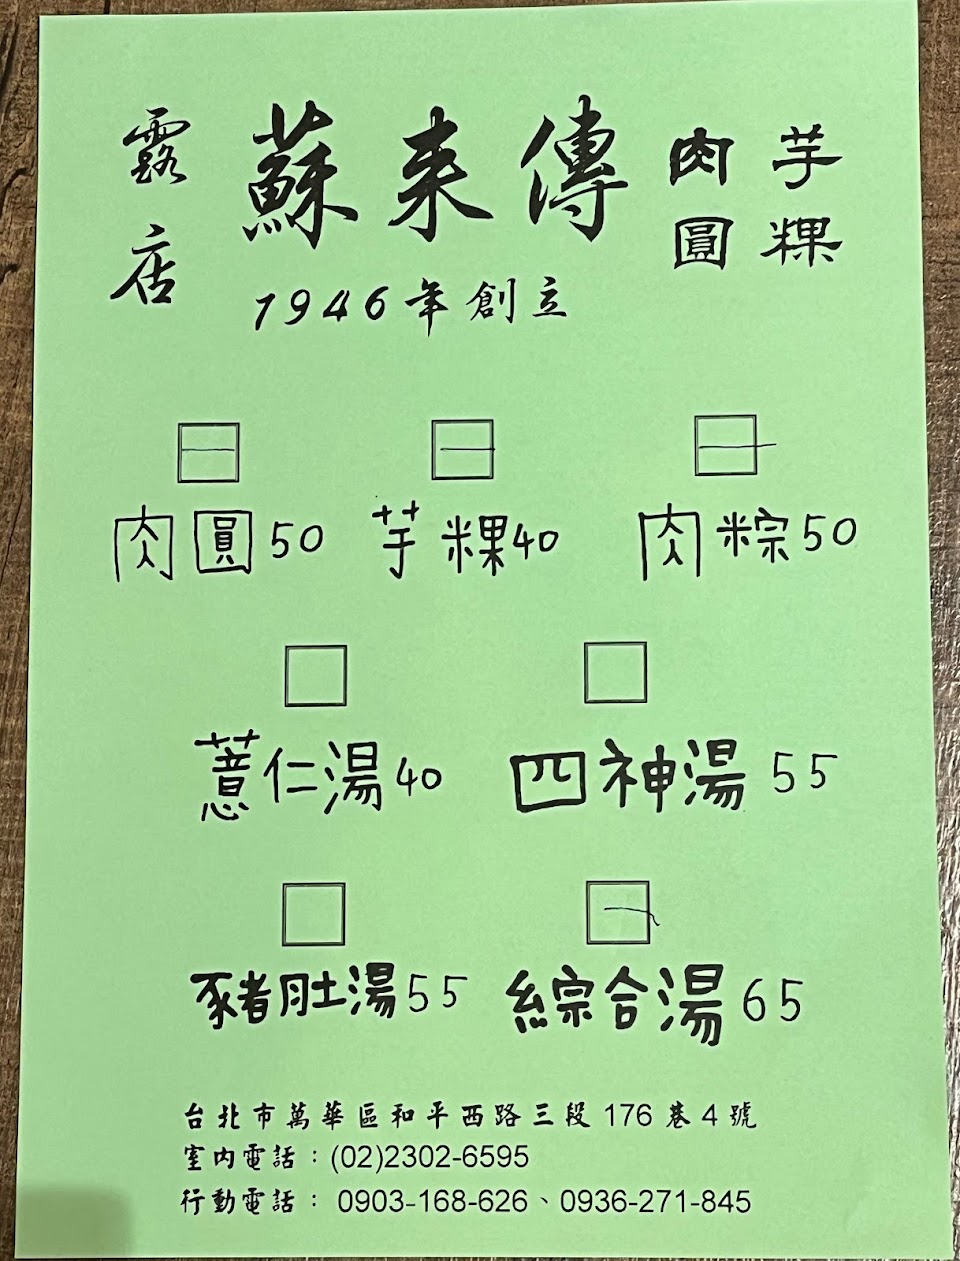 露店 蘇来傳 肉圓 芋粿
1946年創立
肉圓50 芋粿40 肉粽50
薏仁湯40 四神湯55
豬肚湯55 綜合湯65
台北市萬華區和平西路三段176巷4號
室內電話：(02)2302-6595
行動電話： 0903-168-626、0936-271-845